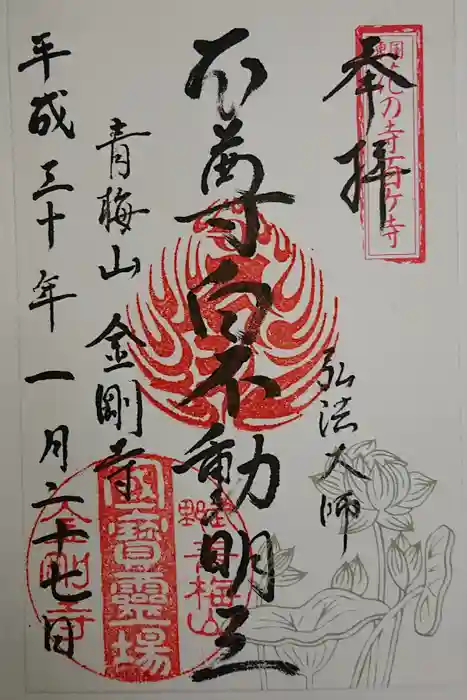 奉拝
東国花の寺百ヶ寺
弘法大師
本尊白不動明王
青梅山 金剛寺
平成三十年一月二十七日
国寶霊場
青梅山
金剛寺